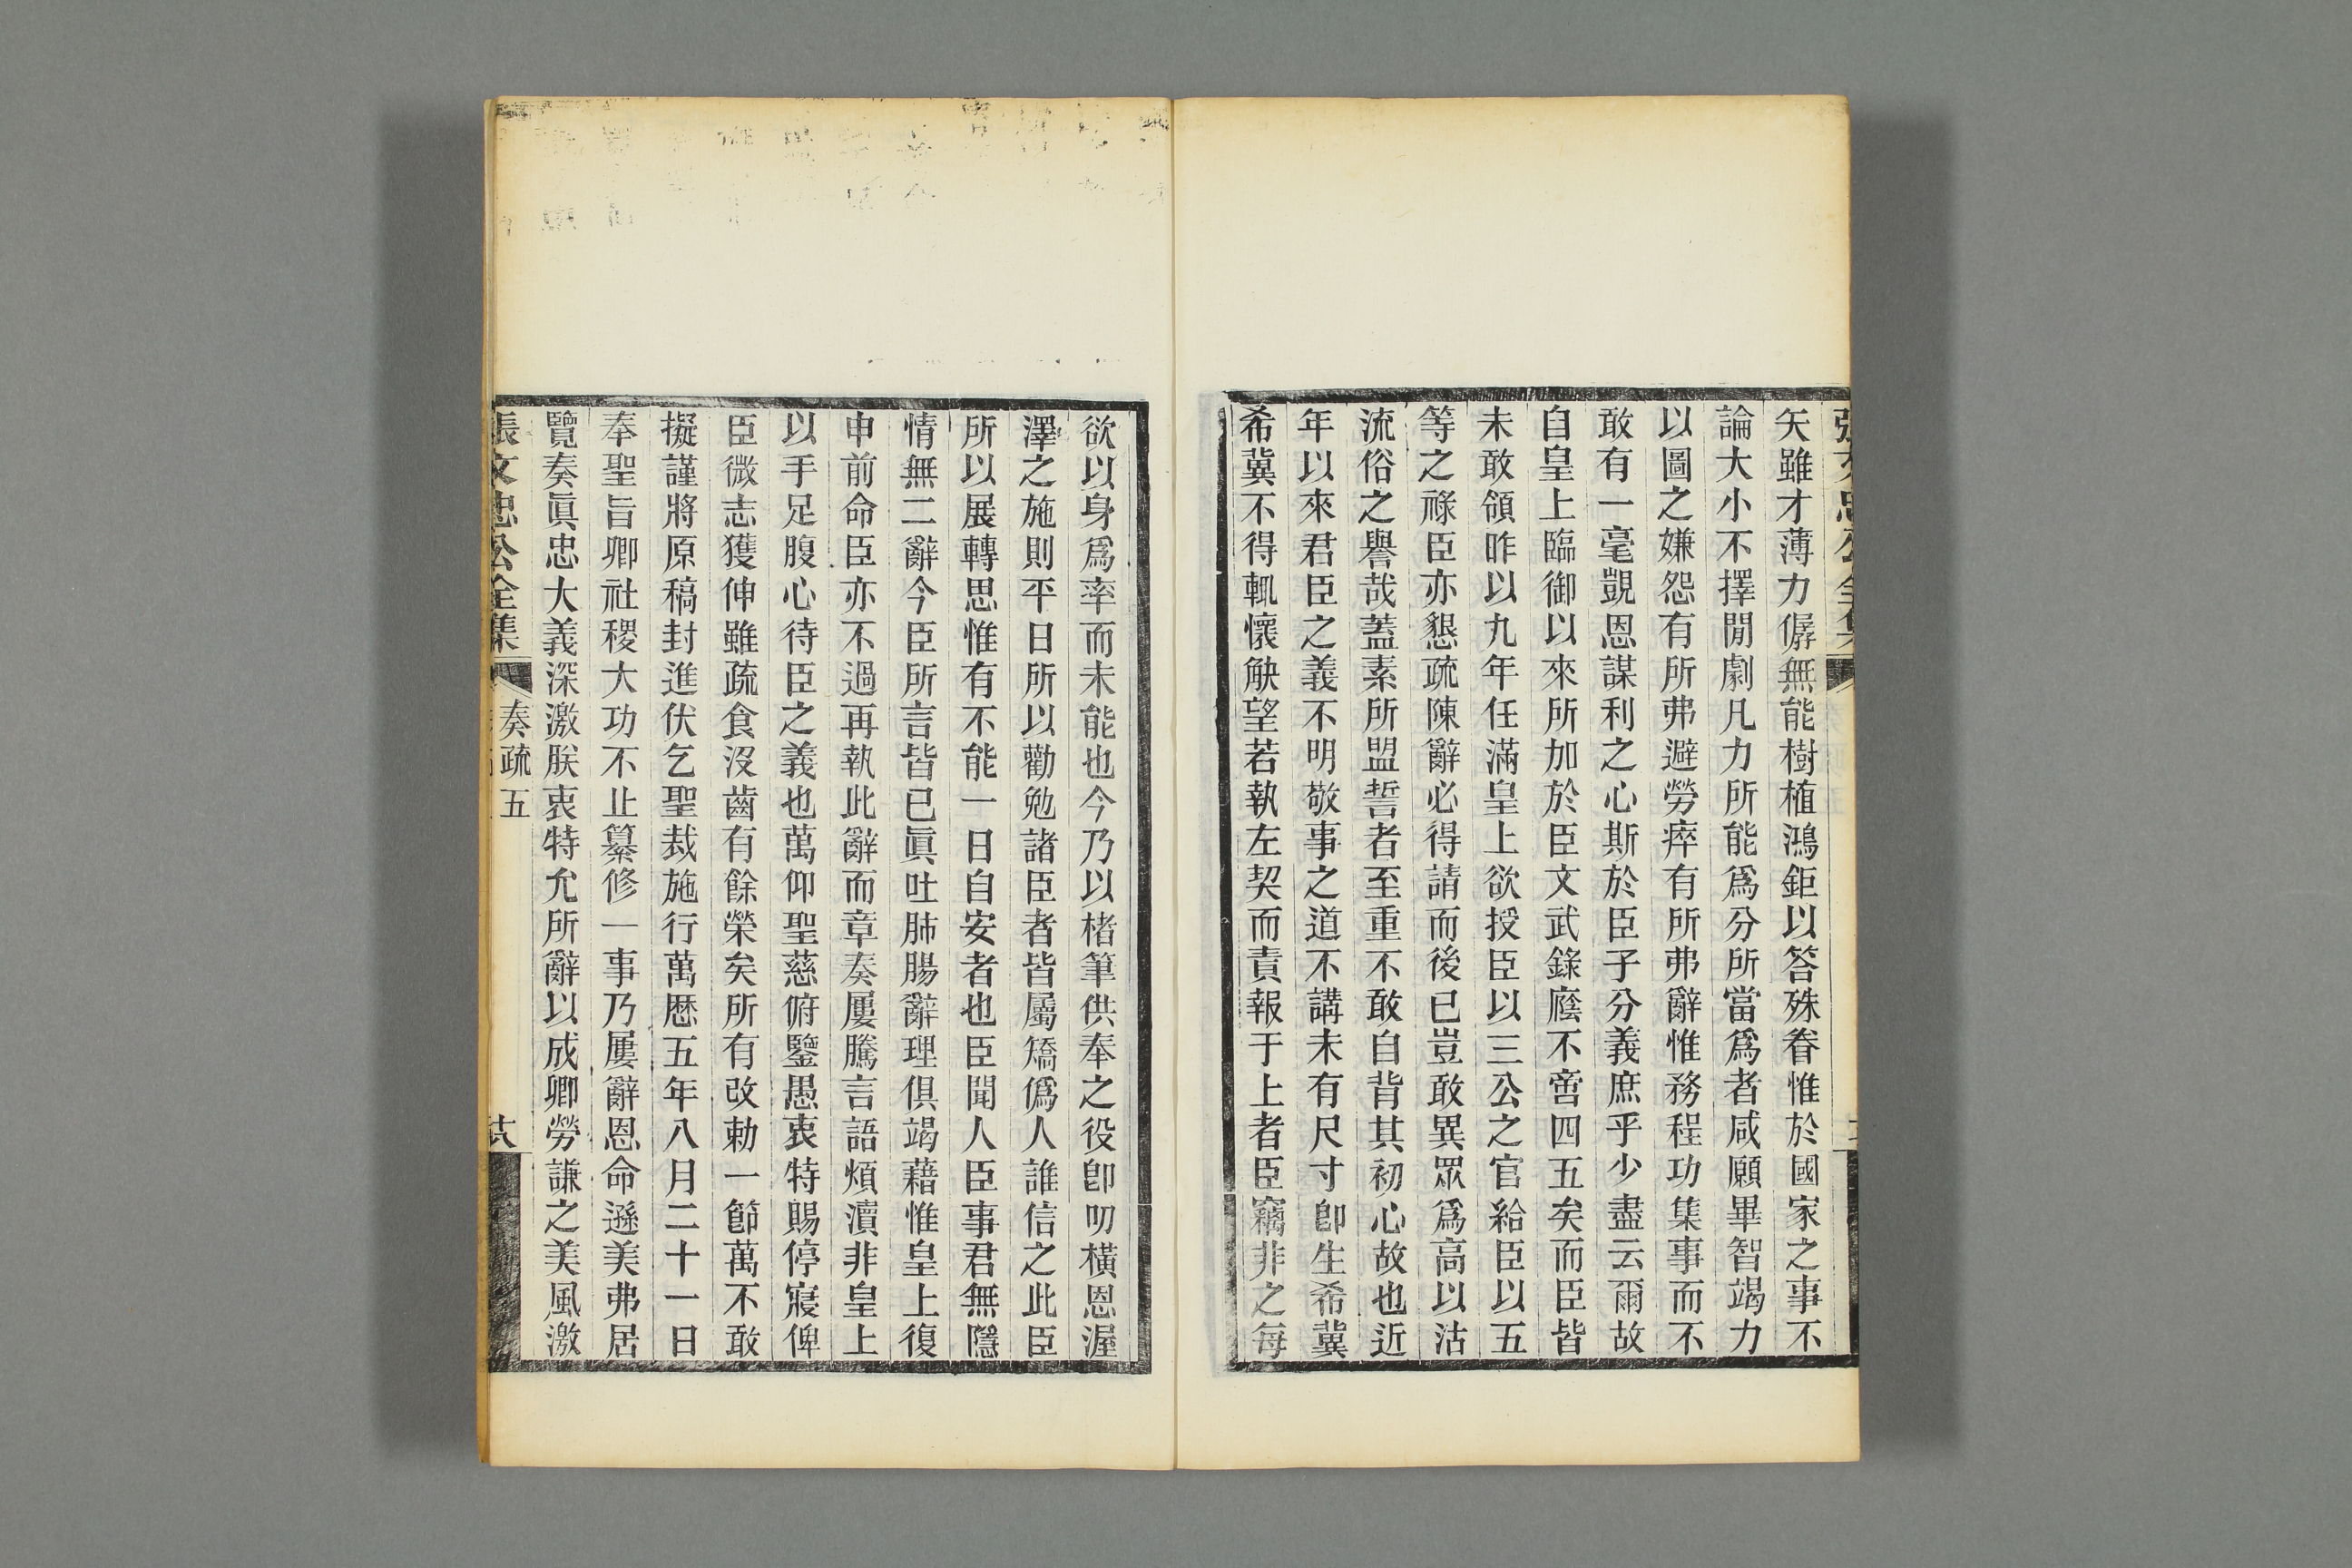 張文忠公全集
矢雖才薄力孱無能樹植鴻鉅以答殊眷惟於國家之事不
論大小不擇閒劇凡力所能爲分所當爲者咸願畢智竭力
以圖之嫌怨有所弗避勞瘁有所弗辭惟務程功集事而不
敢有一毫覬恩謀利之心斯於臣子分義庶乎少盡云爾故
自皇上臨御以來所加於臣文武錄廕不啻四五矣而臣皆
未敢領昨以九年任滿皇上欲授臣以三公之官給臣以五
等之祿臣亦懇疏陳辭必得請而後已豈敢異眾爲高以沽
流俗之譽哉蓋素所盟誓者至重不敢自背其初心故也近
年以來君臣之義不明敬事之道不講未有尺寸卽生希冀
希冀不得輒懷觖望若執左契而責報于上者臣竊非之每
欲以身爲率而未能也今乃以楮筆供奉之役卽叨橫恩渥
澤之施則平日所以勸勉諸臣者皆屬矯僞人誰信之此臣
所以展轉思惟有不能一日自安者也臣聞人臣事君無隱
情無二辭今臣所言皆已眞吐肺腸辭理俱竭藉惟皇上復
申前命臣亦不過再執此辭而章奏屢騰言語煩瀆非皇上
以手足腹心待臣之義也萬仰聖慈俯鑒愚衷特賜停寢俾
臣微志獲伸雖疏食沒齒有餘榮矣所有改勅一節萬不敢
擬謹將原稿封進伏乞聖裁施行萬歴五年八月二十一日
奉聖旨卿社稷大功不止纂修一事乃屢辭恩命遜美弗居
覽奏眞忠大義深激朕衷特允所辭以成卿勞謙之美風激
張文忠公全集
奏疏五